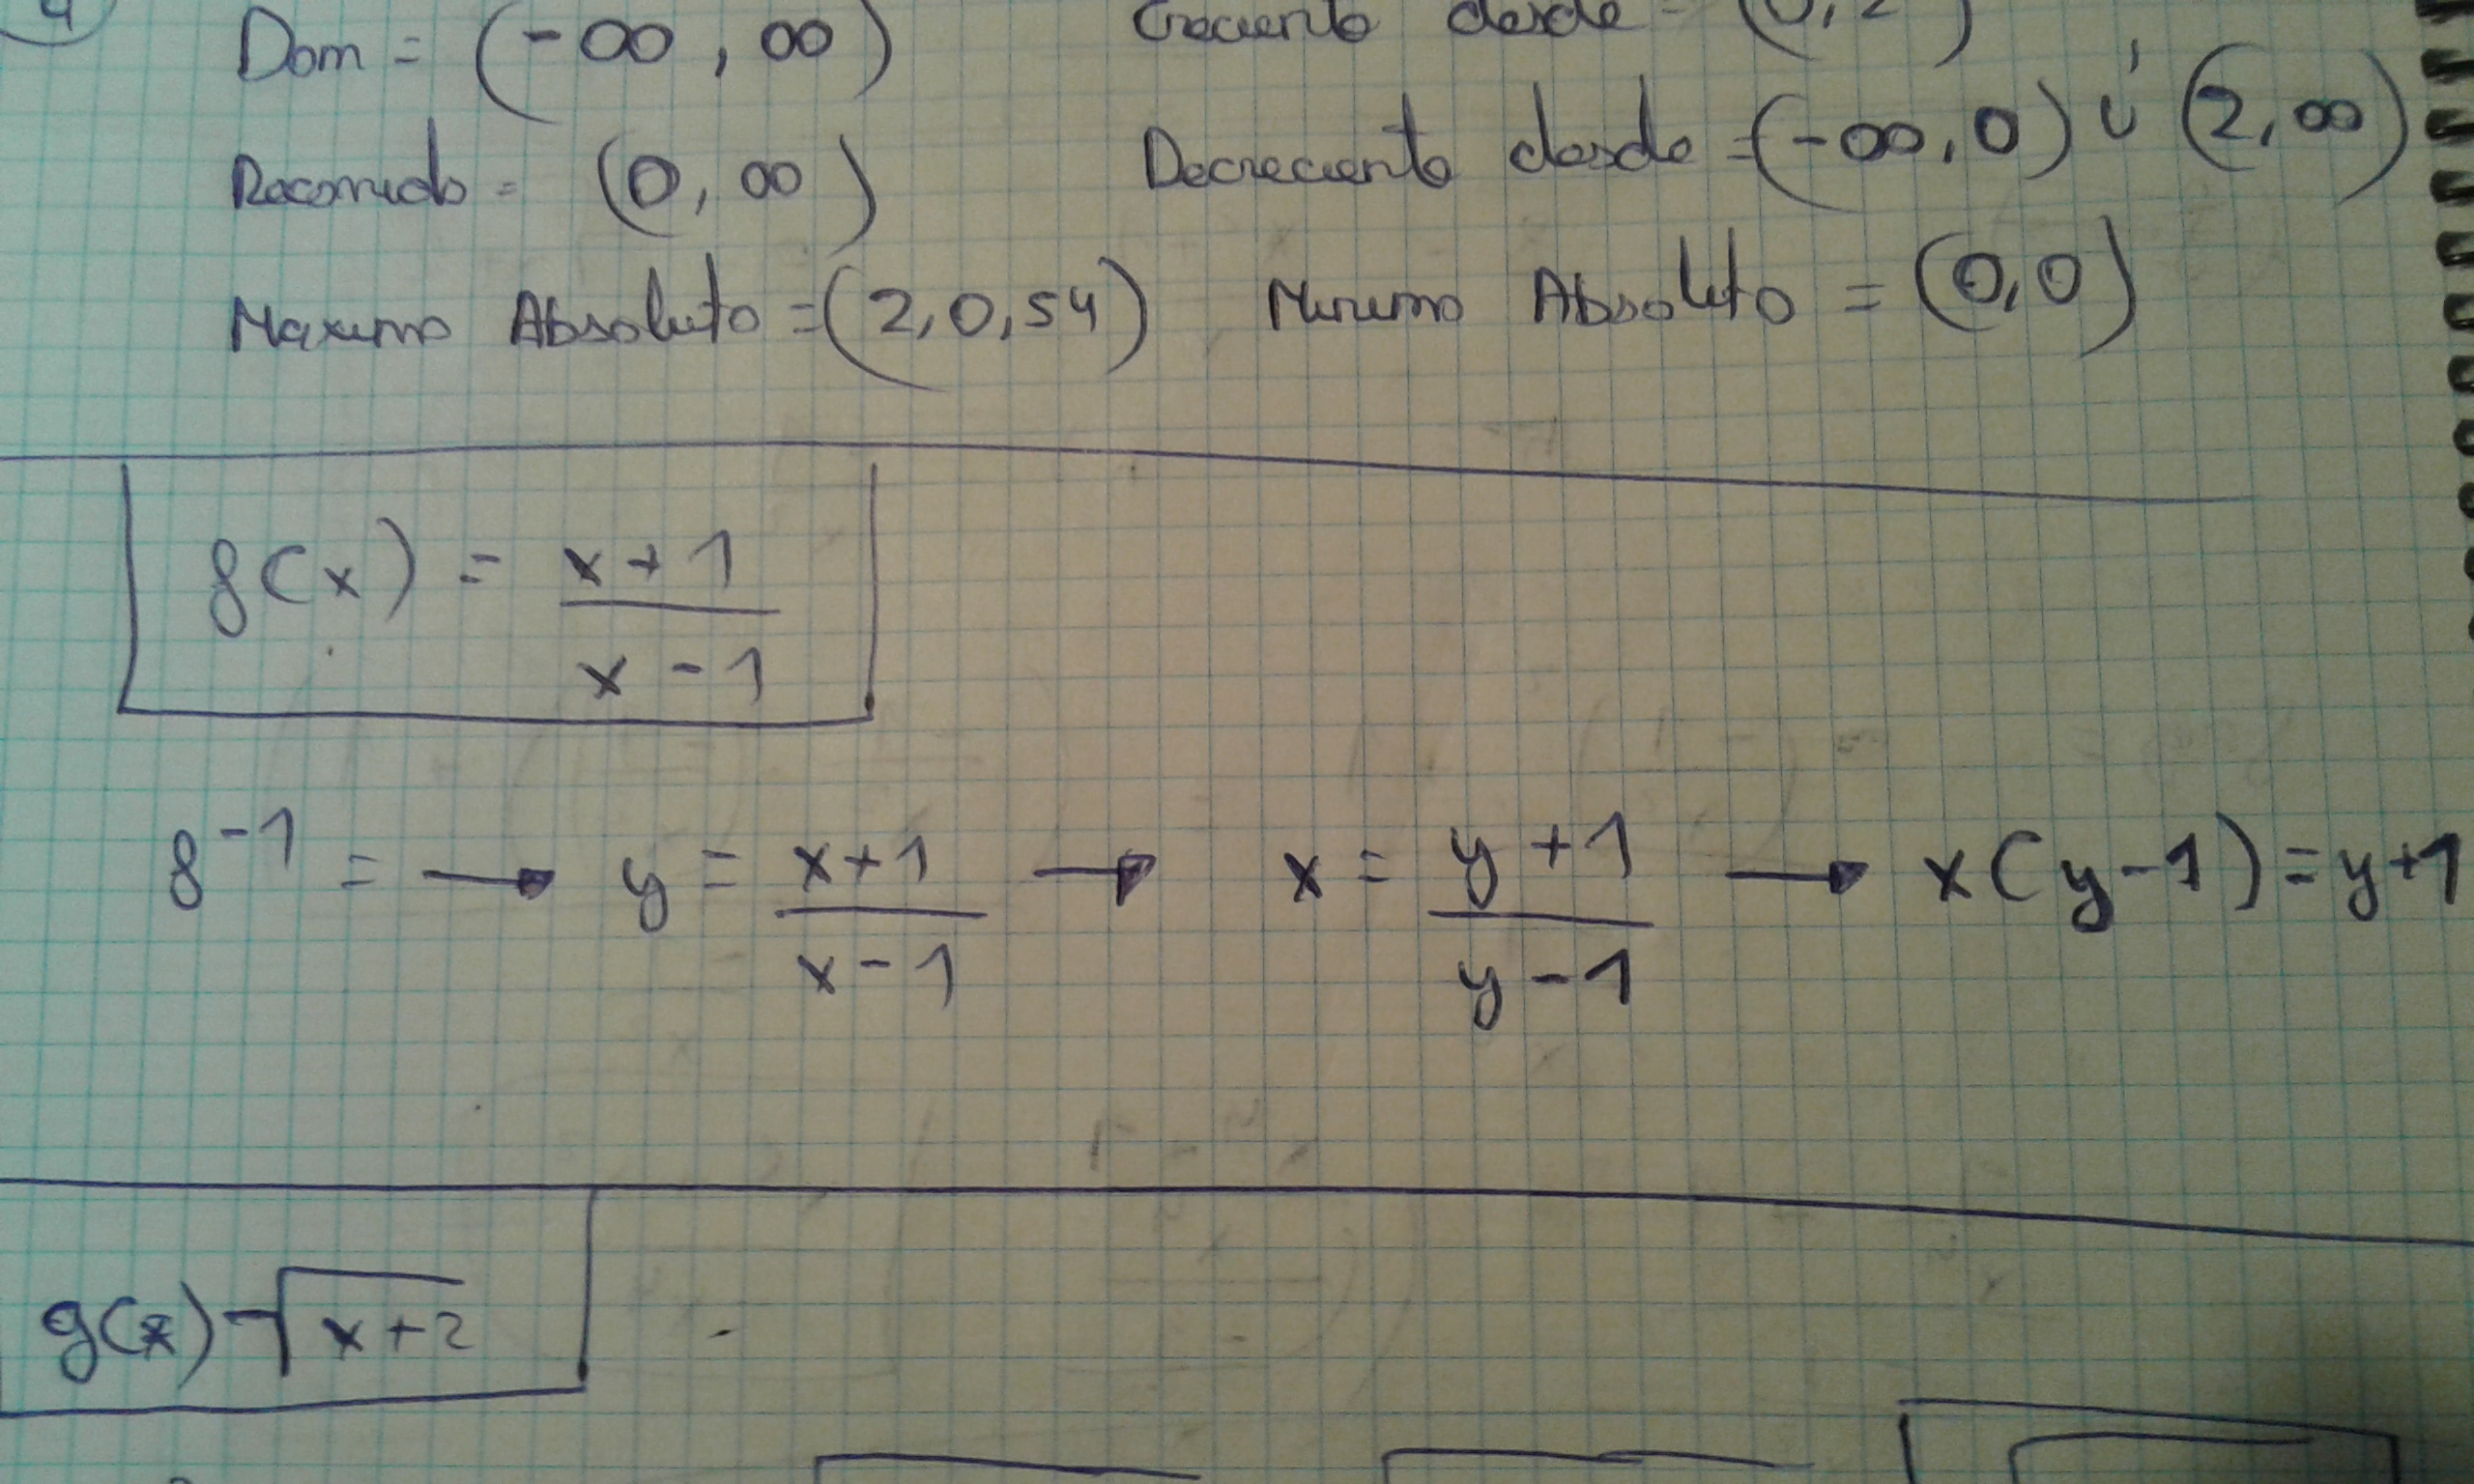 4
Dom = (-∞, ∞)
Creciente desde = (0,2)
Recorrido = (0, ∞)
Decreciente desde = (-∞, 0) ú (2, ∞)
Maximo Absoluto = (2, 0,54)
Minimo Absoluto = (0,0)
f(x) = x+1 / x-1
f⁻¹ = → y = x+1 / x-1 → x = y+1 / y-1 → x(y-1) = y+1
g(x) - √x+2